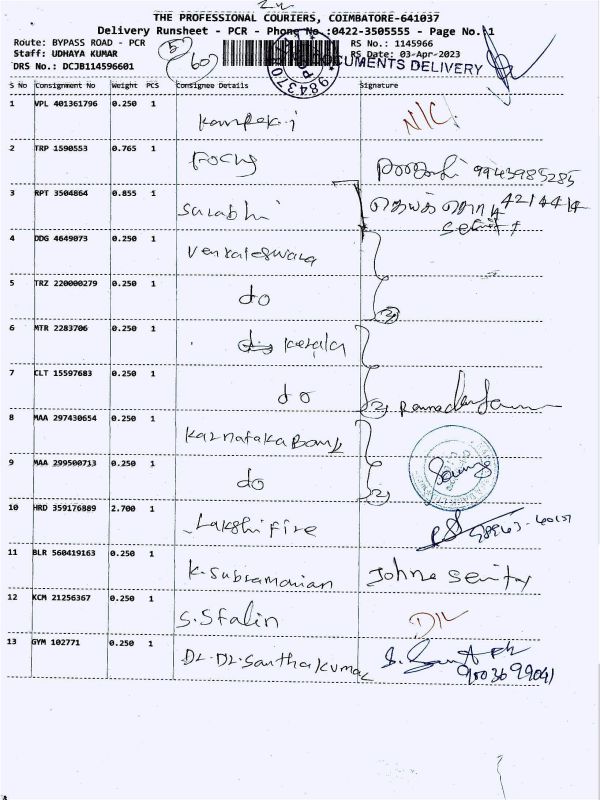 THE PROFESSIONAL COURIERS, COIMBATORE-641037
Delivery Runsheet - PCR - Phone No.:0422-3505555 - Page No. 1
Route: BYPASS ROAD - PCR
RS No.: 1145966
Staff: UDHAYA KUMAR
RS Date: 03-Apr-2023
DRS No.: DCJB114596601
DOCUMENTS DELIVERY
S No Consignment No Weight PCS Consignee Details Signature
1 VPL 401361796 0.250 1 N/C
2 TRP 1590553 0.765 1 Focus 9943985285
3 RPT 3504864 0.855 1 Sarabhi 4214414
4 DDG 4649073 0.250 1 Venkateswara
5 TRZ 220000279 0.250 1 do
6 MTR 2283706 0.250 1 Kerala
7 CLT 15597683 0.250 1 do
8 MAA 297430654 0.250 1 Karnataka Bank
9 MAA 299500713 0.250 1 do
10 HRD 359176889 2.700 1 Lakshi Fire
11 BLR 560419163 0.250 1 K. Subramanian
12 KCM 21256367 0.250 1 S. Stalin D/L
13 GYM 102771 0.250 1 DR. DL. Santhakumar
9003699041